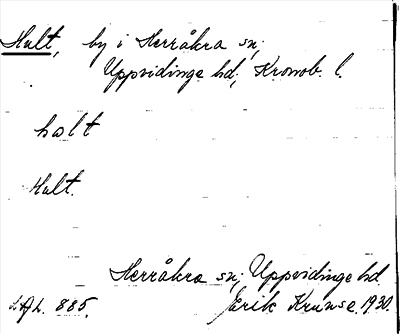 Hult, by i Herråkra sn;
Uppvidinge hd, Kronob. l.
hult
Hult.
Herråkra sn; Uppvidinge hd.
L.A.L. 885. Erik Krunse. 1930.